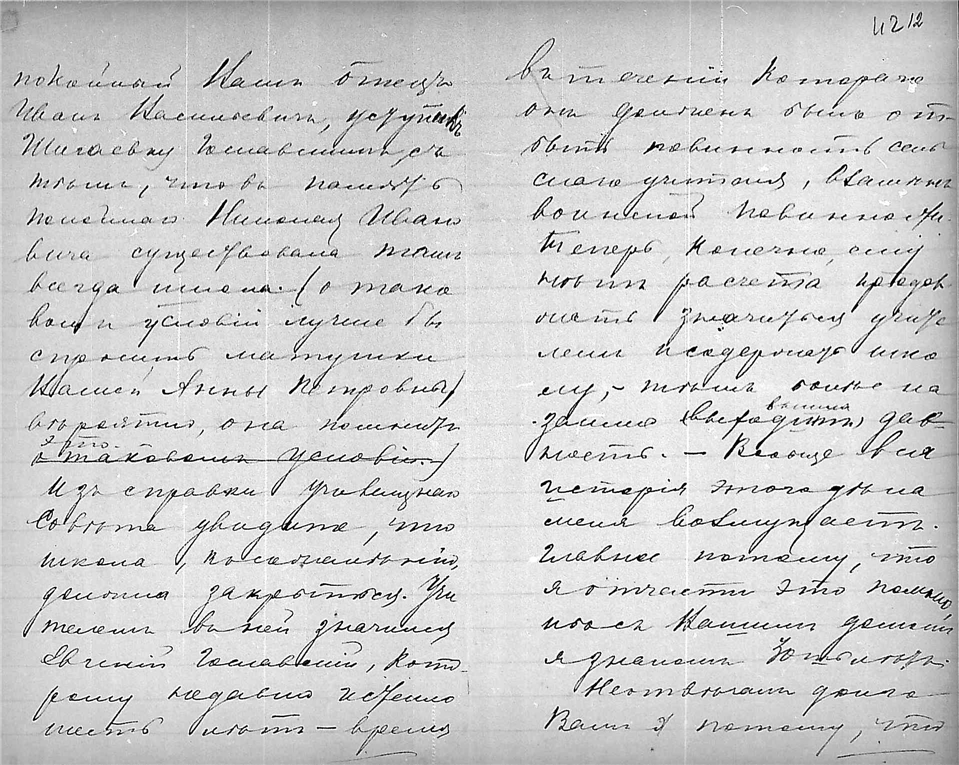 4212
покойный Вашъ отецъ
Иванъ Васильевичъ, уступилъ
Шигаевку Гославскимъ съ
тѣмъ, чтобъ память
покойнаго Николая Ивано
вича существовала тамъ
всегда школа. (о тако
вомъ условій лучше бы
спросить матушки
Вашей Анны Петровны)
вѣроятно, она помнитъ
это.
о таковомъ условіи.)
Изъ справки училищнаго
Совѣта увидите, что
школа, по
должна закрыться. Учи
телемъ въ ней значился
Евгеній Гославскій, кото
рому недавно исполно
шесть лѣтъ – время
въ теченіи котораго
онъ долженъ былъ от
быть повинность сель
скаго учителя, взамѣнъ
воинской повинности.
Теперь, конечно, ему
нѣтъ расчета продол
жать значиться учите
лемъ и содержать шко
лу, – тѣмъ болѣе на
земская
вышла
дав
ность. – Вообще вся
исторія этого дѣла
меня возмущаетъ.
Главное потому, что
я отчасти это
лось Вашимъ
я знакомъ
Неотвѣчалъ долго
Вамъ и потому, что